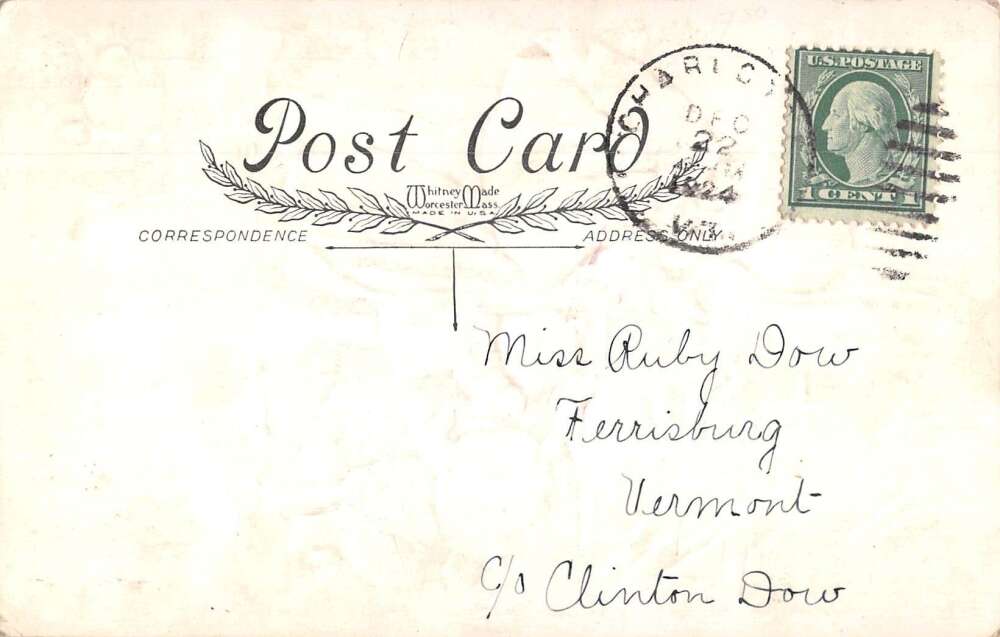 U.S. POSTAGE
1 CENT 1
DEC
22
1924
Post Card
Whitney Made
Worcester Mass.
MADE IN U.S.A.
CORRESPONDENCE
ADDRESS ONLY
Miss Ruby Dow
Ferrisburg
Vermont
c/o Clinton Dow